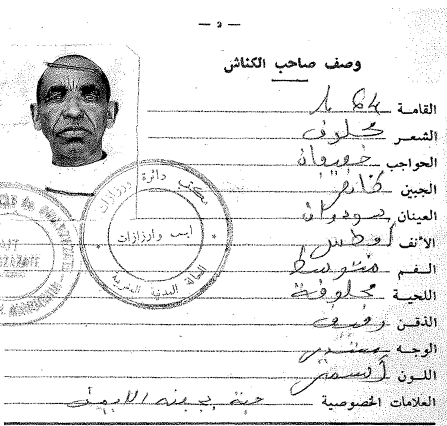 — 2 —
وصف صاحب الكناش
القامة 1 64
الشعر محلوق
الحواجب خفيفان
الجبين
العينان سوداوان
الأنف أفطس
الفم متوسط
اللحية محلوقة
الذقن رقيق
الوجه مستدير
اللون أسمر
العلامات الخصوصية حبة بجبينه الأيمن
مكتب دائرة ورزازات
ايت وارزازات
الحالة المدنية المغربية